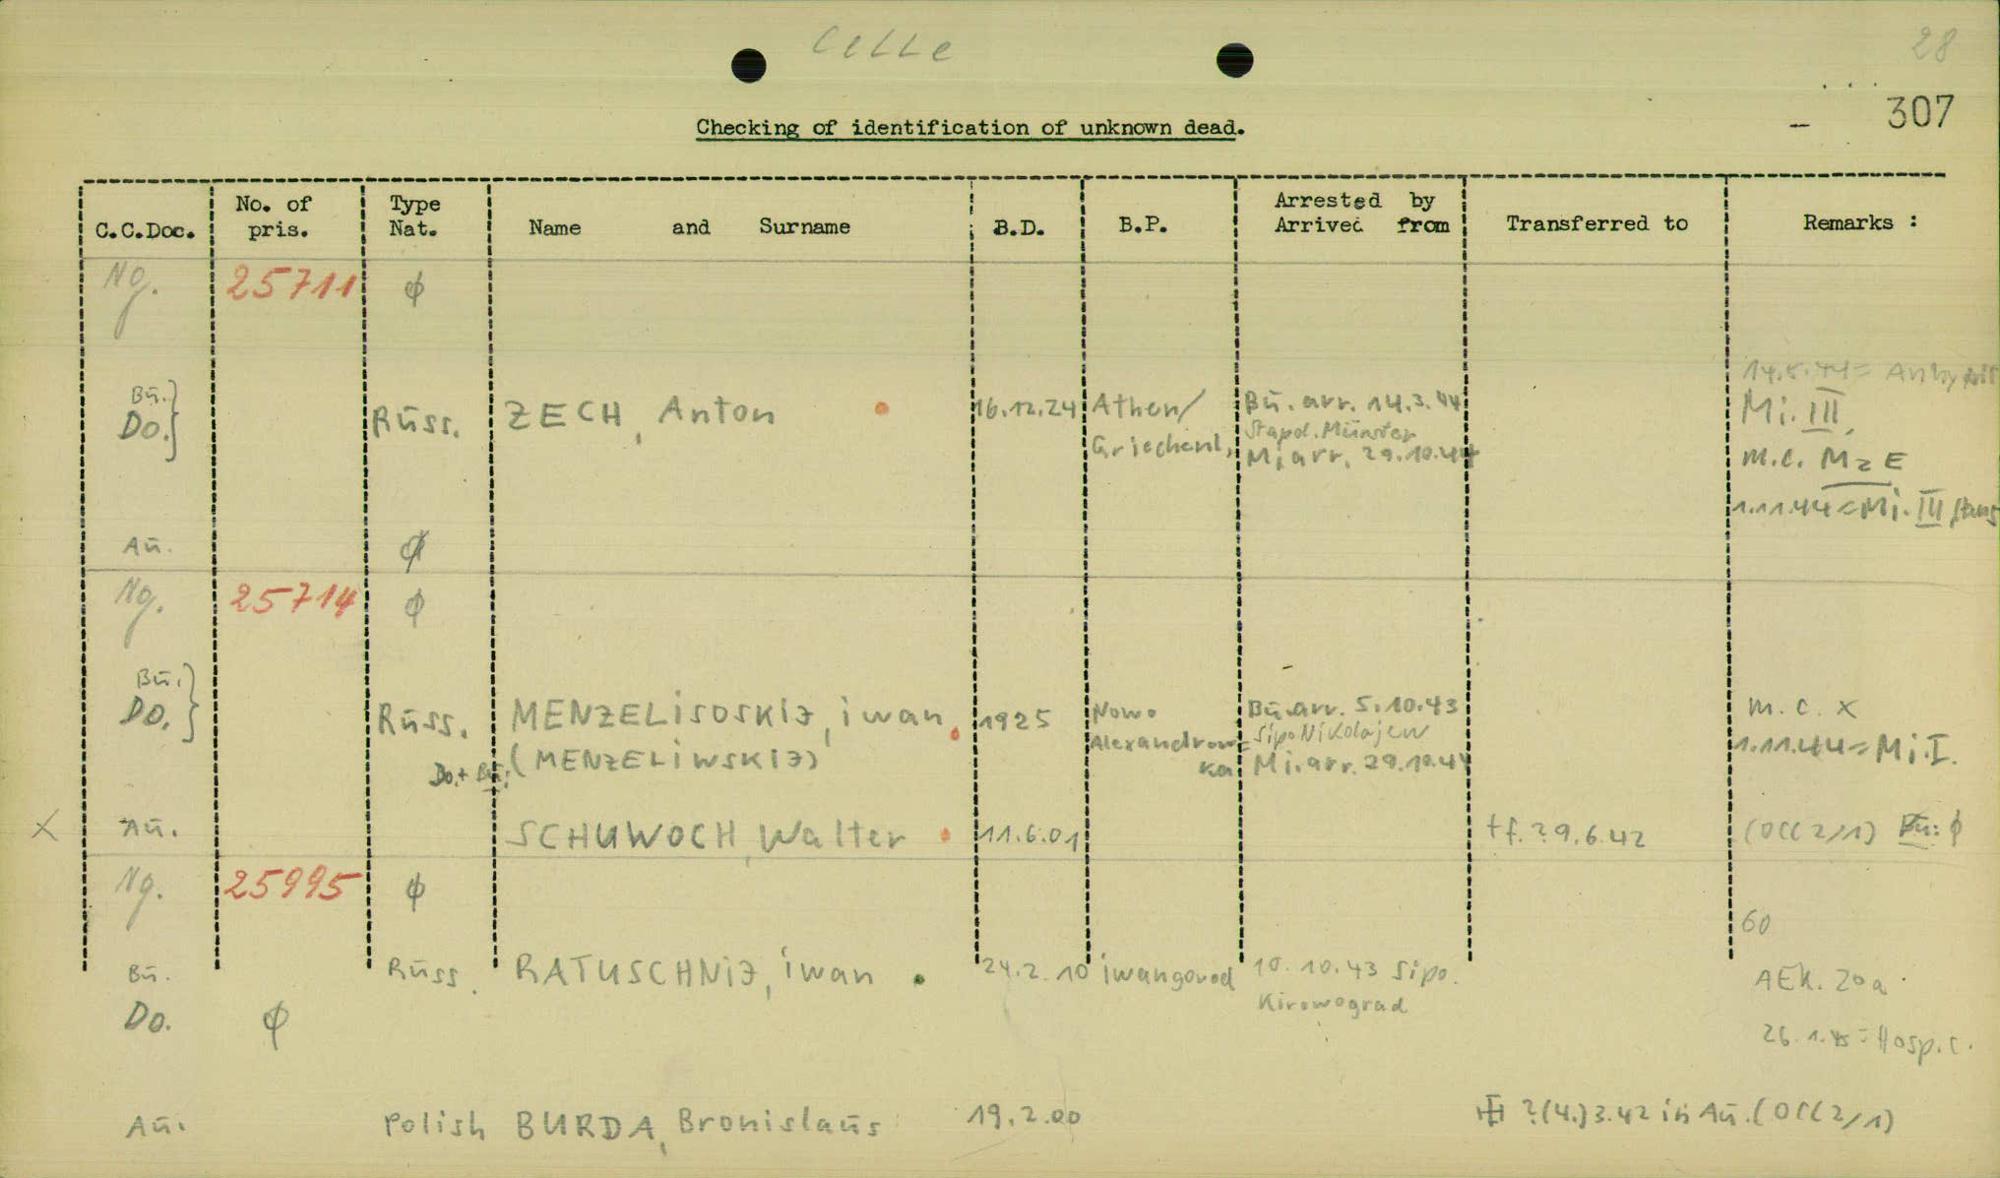 Celle
28
307
Checking of identification of unknown dead.
C.C.Doc. No. of pris. Type Nat. Name and Surname B.D. B.P. Arrested by Arrived from Transferred to Remarks :
Ng. 25711 ϕ
14.5.44=
Bü. } Bü. arr. 14.3.44 Mi. III,
Do. } Rüss. ZECH, Anton 16.12.24 Athen/ Stapol. Münster
Griechenl, Mi arr. 29.10.44 m.c. MzE
1.11.44=Mi. III
Aü. ϕ
Ng. 25714 ϕ
Bü. }
Do. } Rüss. MENZELiSOSKiJ, iwan 1925 Nowo Bü. arr. 5.10.43 m. c. x
Alexandrow= Sipo Nikolajew 1.11.44=Mi.I.
Do.+ Bü: (MENZELiWSKiJ) ka Mi. arr. 29.10.44
X Aü. SCHUWOCH, Walter 11.6.01 tf. ?9.6.42 (OCC 2/1) Bü: ϕ
Ng. 25995 ϕ
60
Bü. Rüss. RATUSCHNiJ, iwan 24.2.10 iwangorod 10.10.43 Sipo. AEK. 20a
Do. ϕ Kirowograd
26.1.45=Hosp. c.
Aü. Polish BURDA, Bronislaüs 19.2.00 ?(4.)3.42 in Aü. (OCC 2/1)